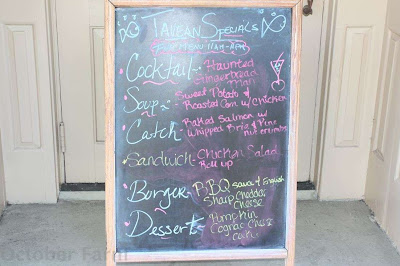 Tavean Specials
Full Menu 11AM-4PM
Cocktail - Haunted
Gingerbread
Man
Soup - Sweet Potato &
Roasted Corn w/ Chicken
Catch - Baked Salmon w/
Whipped Brie & Pine
nut crumbs
Sandwich - Chicken Salad
Roll up
Borger - BBQ Sauce & English
Sharp Cheddar
Cheese
Dessert - Pumpkin
Cognac Cheese
Cake
October Farm